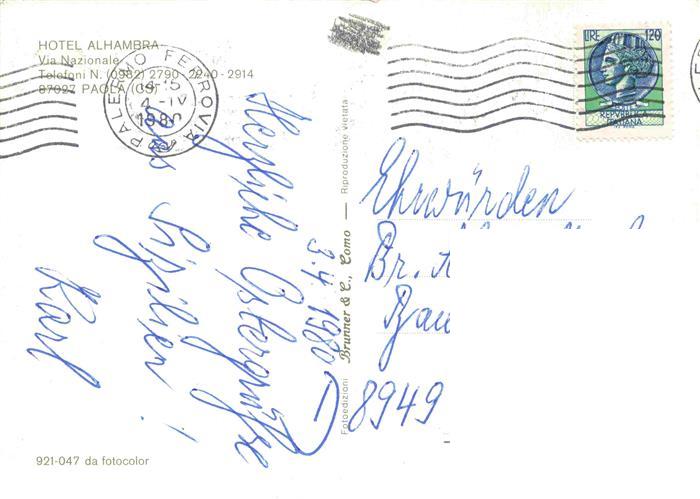 HOTEL ALHAMBRA
Via Nazionale
Telefoni N. (0982) 2790 - 2240 - 2914
87027 PAOLA (CS)
PALERMO FERROVIA
4 - IV
1980
LIRE 120
REPVBBLICA
ITALIANA
Herzliche Ostergrüße
aus Sizilien !
Karl
3.4.1980
Riproduzione vietata
Brunner & C., Como
Fotoedizioni
Ehrwürden
Br.
8949
921-047 da fotocolor